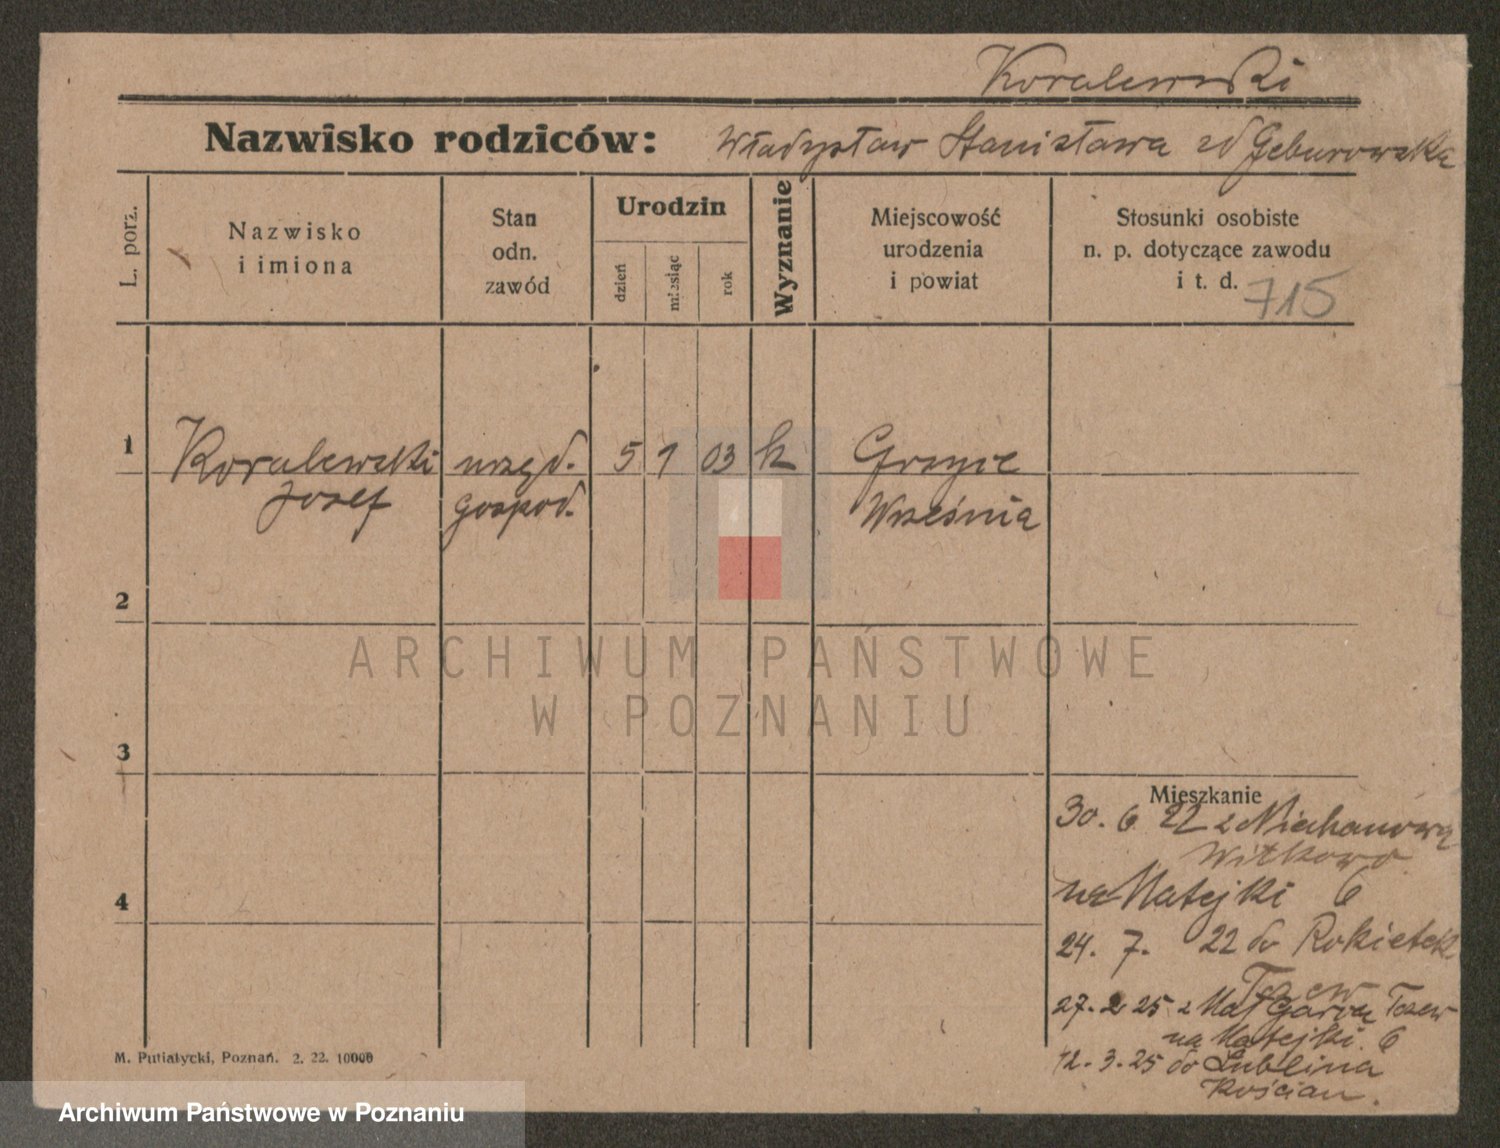 Koralewski
Nazwisko rodziców: Władysław Stanisława zd Geburowska
L. porz.
Nazwisko
i imiona
Stan
odn.
zawód
Urodzin
dzień
miesiąc
rok
Wyznanie
Miejscowość
urodzenia
i powiat
Stosunki osobiste
n. p. dotyczące zawodu
i t. d. 715
1 Koralewski urzęd. 5 1 03 k
Josef gospod. Września
2
ARCHIWUM PAŃSTWOWE
W POZNANIU
3
Mieszkanie
30. 6 22 z Niechanowa
Witkowo
4
na Matejki 6
24. 7. 22 do Rokietek
Tczew
27. 2 25 z Mał Garca Tczew
na Matejki. 6
12. 3. 25 do Lublina
Kościan.
M. Putiatycki, Poznań. 2. 22. 10000
Archiwum Państwowe w Poznaniu